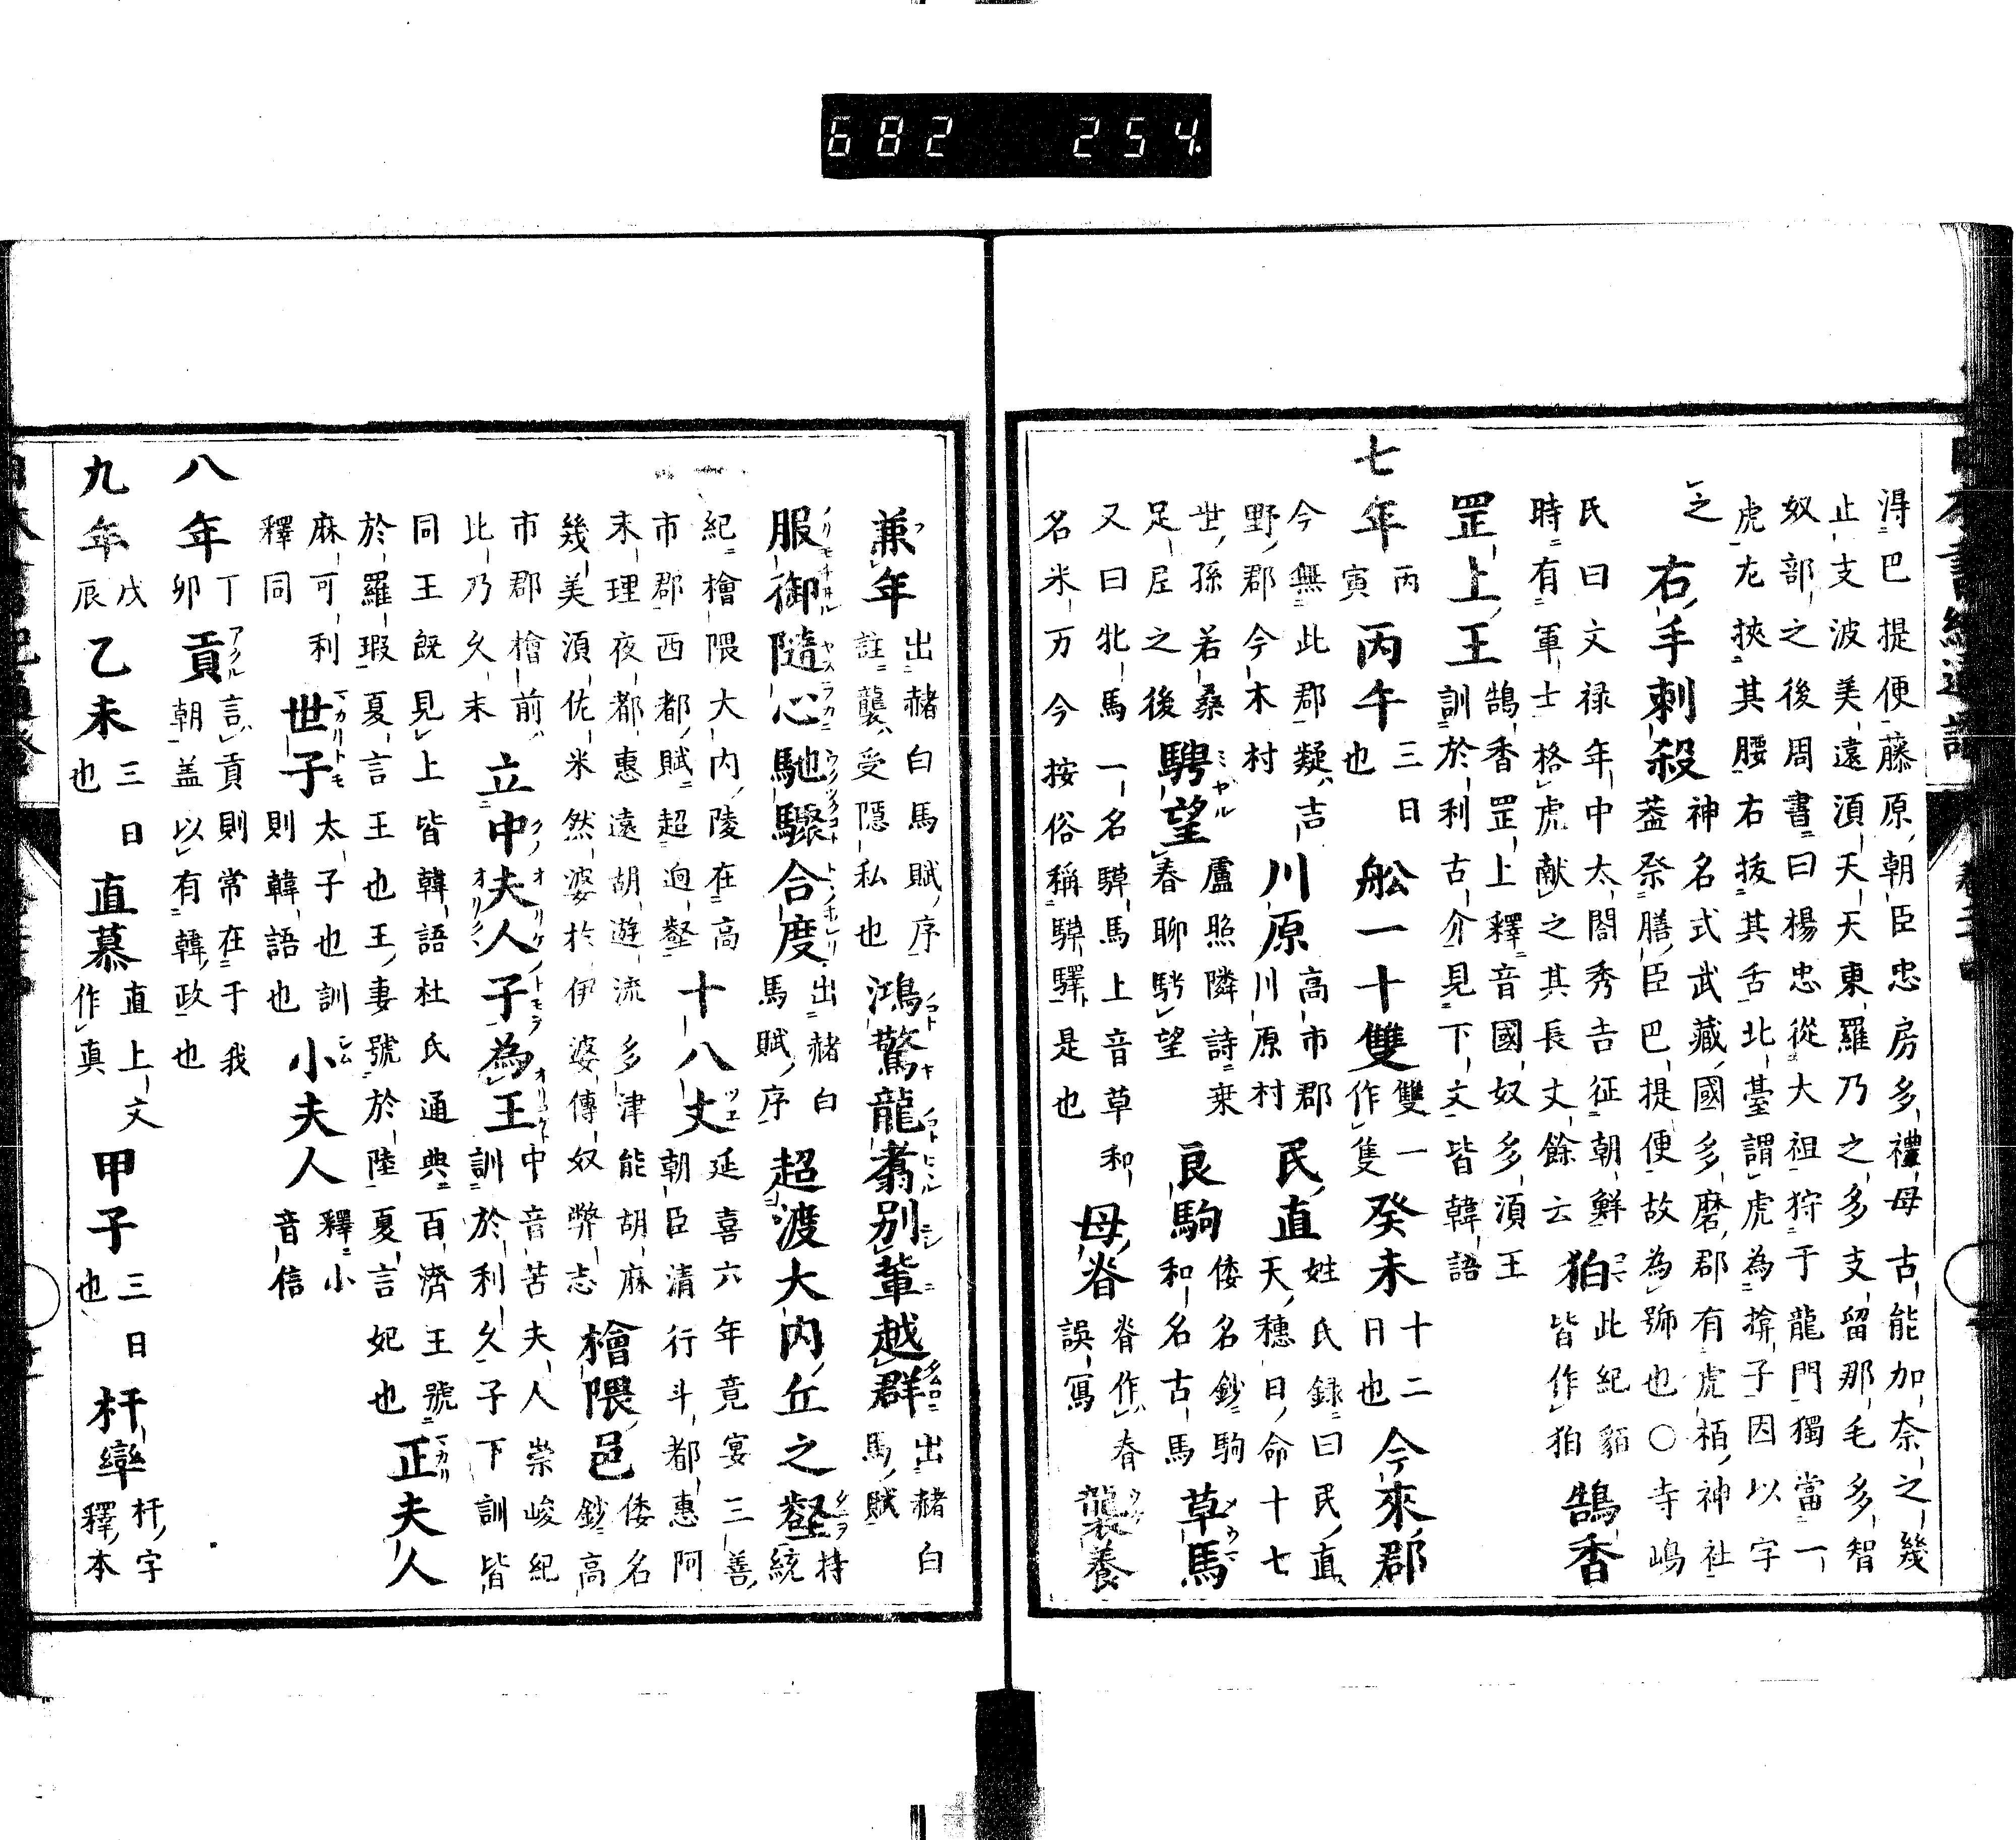 淂巴提便藤原朝臣忠房多禮母古能加奈之幾
止支波美遠湏天天東羅乃之多支留那毛多智
奴部之後周書曰楊忠從大祖狩于龍門獨當一
虎尢挾其腰右拔其舌北臺謂虎為揜子因以字
之 右手刺殺 神名式武藏國多磨郡有虎栢神社葢祭膳臣巴提便故為號也○寺嶋
氏曰文禄年中太閤秀吉征朝鮮時有軍士格虎献之其長丈餘云 狛 此紀貊皆作狛 鵠香
罡上王 鵠香罡上釋音國奴多湏王訓於利古介見下文皆韓語
七年 丙寅 丙午 三日也 舩一十雙 雙一作隻 癸未 十二日也 今來郡
今無此郡疑吉野郡今木村 川原 高市郡川原村 民直 姓氏録曰民直天穗日命十七
世孫若桑足尼之後 騁望 盧照隣詩乗春聊騁望 良駒 倭名鈔駒和名古馬 草馬
又曰牝馬一名騲馬上音草和名米万今按俗稱騲驛是也 母脊 脊作春誤寫 襲養
兼年 出赭白馬賦序註襲受隱私也 鴻驚龍翥別輩越群 出赭白馬賦
服御隨心馳驟合度 出赭白馬賦序 超渡大内丘之壑 持統
紀檜隈大内陵在高市郡西都賦超迥壑 十八丈 延喜六年竟宴三善朝臣清行斗都惠阿
末理夜都惠遠胡遊流多津能胡麻幾美湏佐米然婆於伊婆傳奴弊志 檜隈邑 倭名鈔高
市郡檜前比乃久末 立中夫人子為王 中音苦夫人崇峻紀訓於利久子下訓皆
同王既見上皆韓語杜氏通典百濟王號於羅瑕夏言王也王妻號於陸夏言妃也 正夫人
麻可利釋同 世子 太子也訓則韓語也 小夫人 釋小音信
八年 丁卯 貢 言貢則常在于我朝盖以有韓政也
九年 戊辰 乙未 三日也 直慕 直上文作真 甲子 三日也 杆率 杆字釋本
682 254